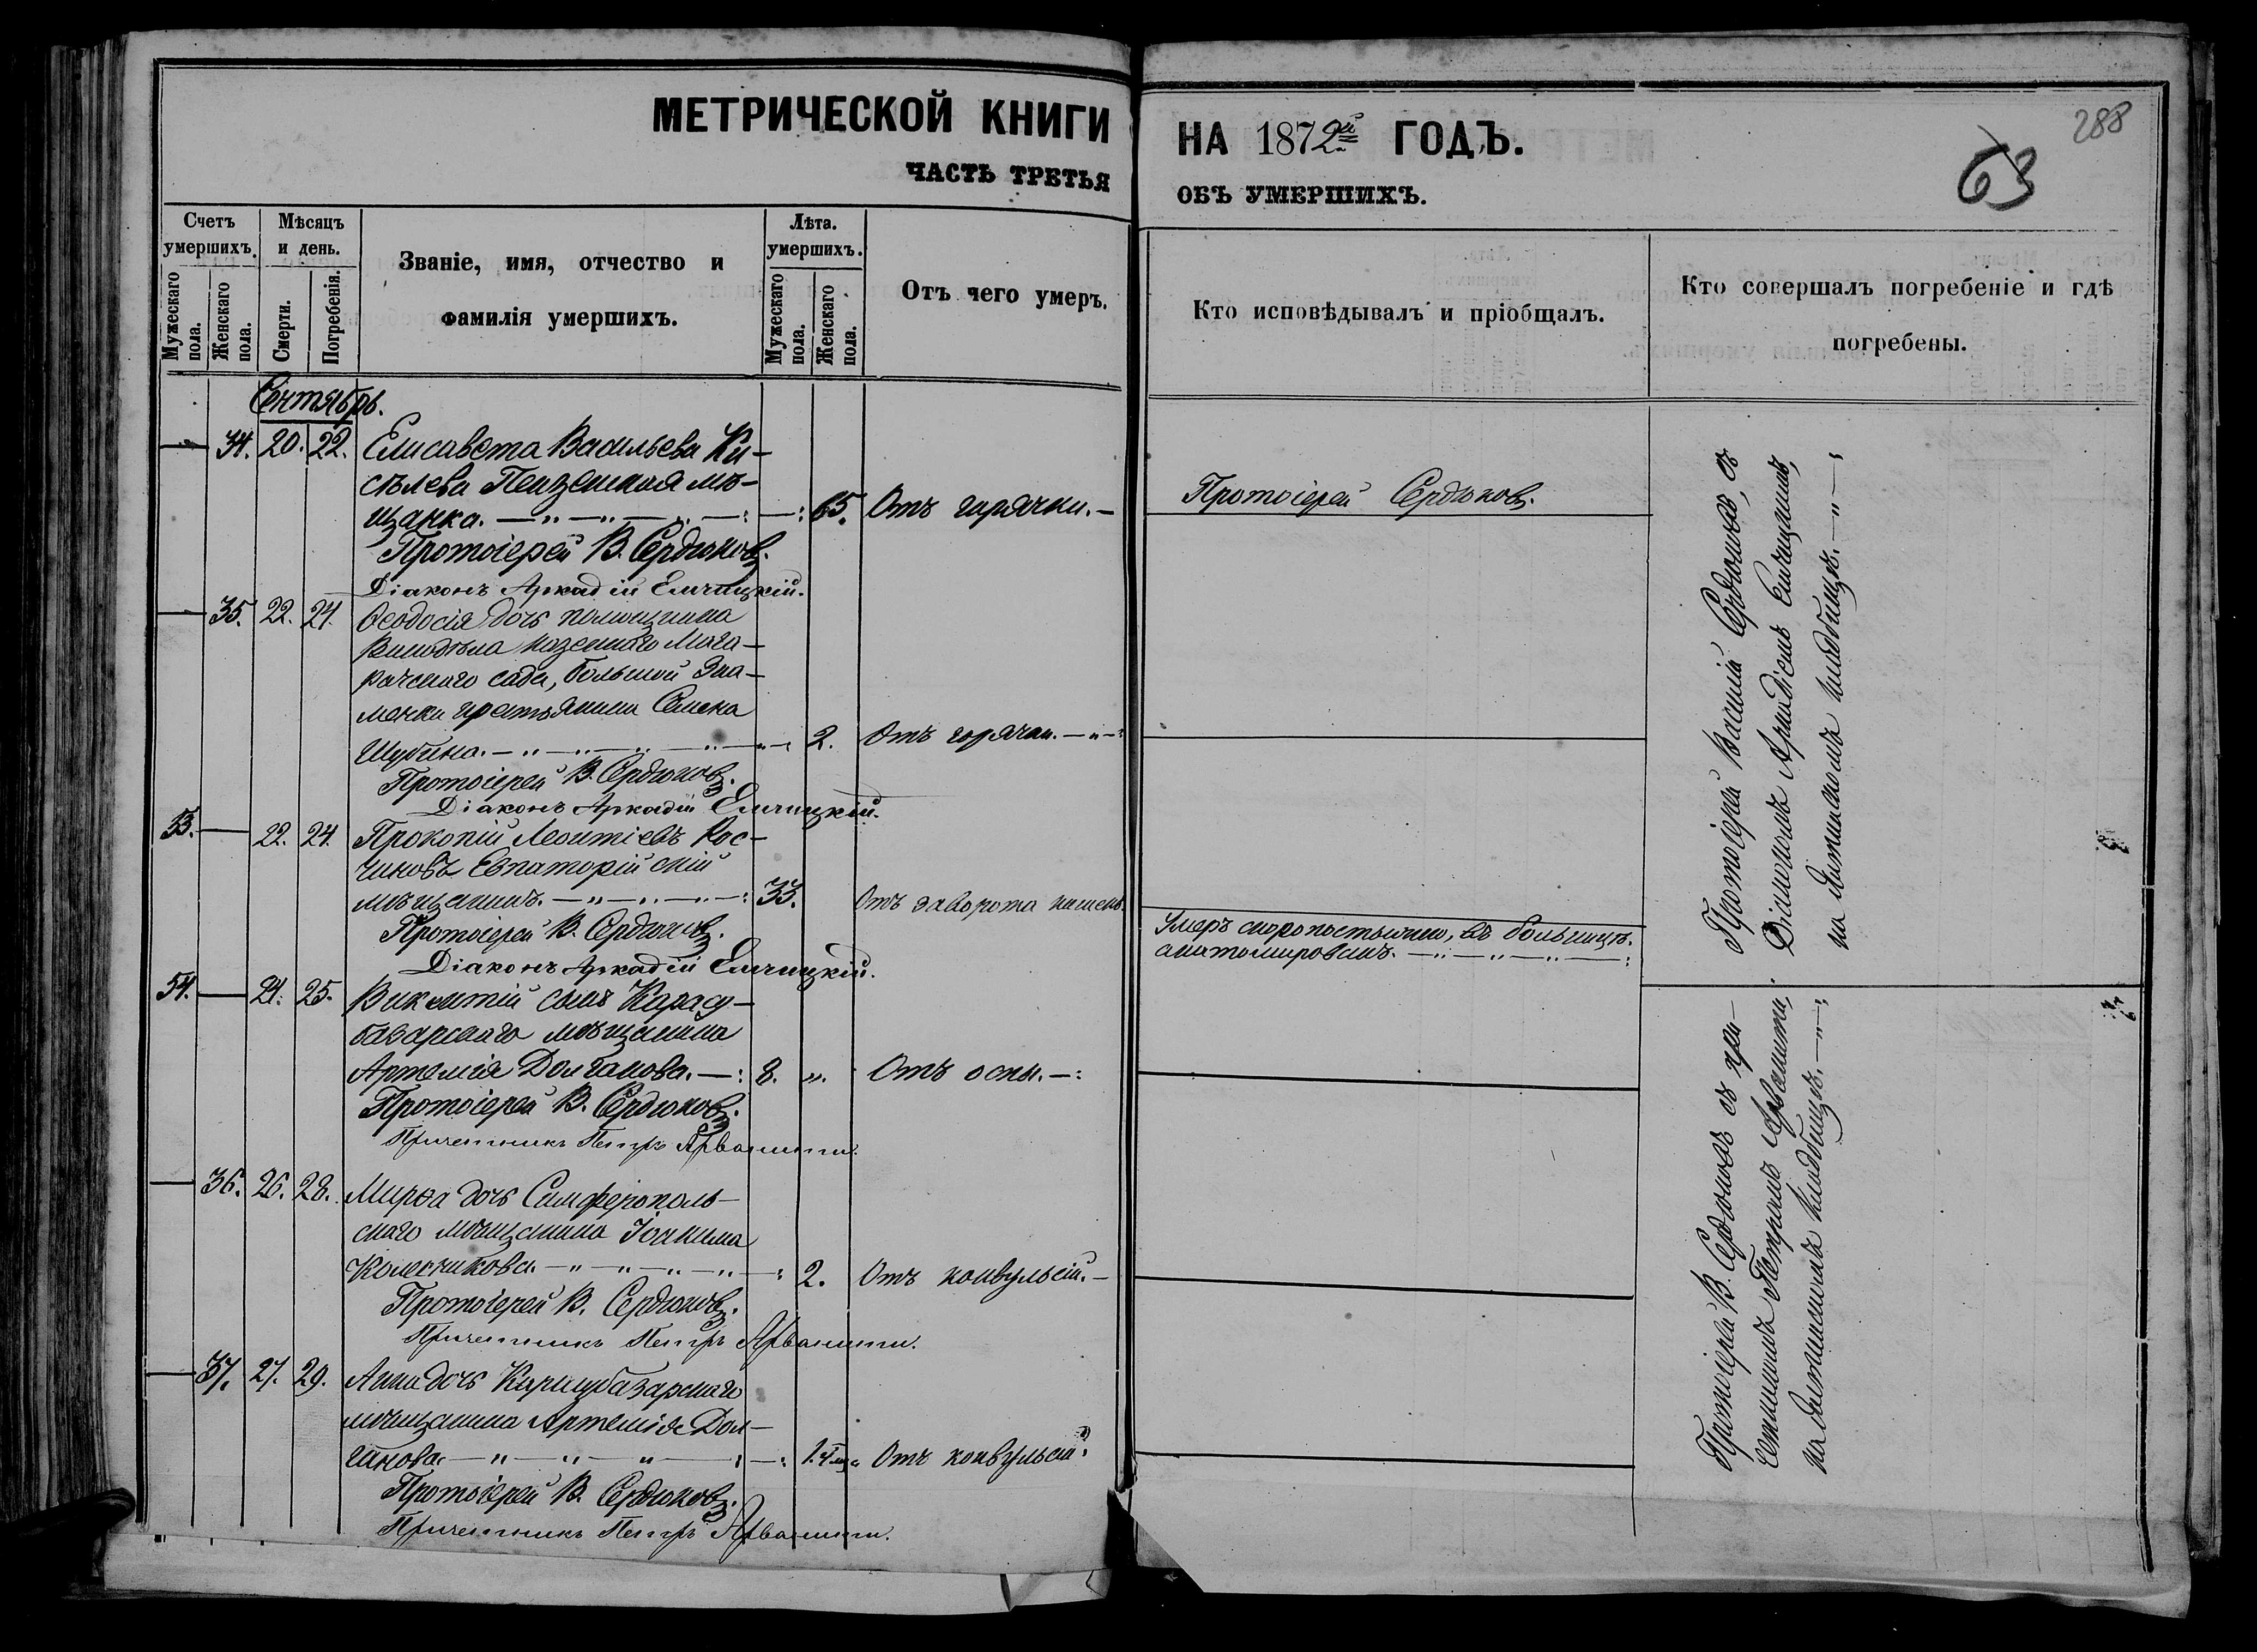 МЕТРИЧЕСКОЙ КНИГИ
ЧАСТЬ ТРЕТЬЯ
Счетъ умершихъ.
Мужескаго пола.
Женскаго пола.
Мѣсяцъ и день.
Смерти.
Погребенія.
Званіе, имя, отчество и
фамилія умершихъ.
Лѣта. умершихъ.
Мужескаго пола.
Женскаго пола.
Отъ чего умеръ.
Сентябрь.
34. 20. 22. Елисавета Васильева Ки-
сѣлева Пензенская мѣ-
щанка. 65. Отъ горячки.
Протоіерей В. Сердюковъ.
Діаконъ Аркадій Емчицкій.
35. 22. 24. Ѳеодосія дочь помощника
Винодѣла казеннаго Мага-
рачскаго сада, большой Зна-
менки крестьянина Семена
Шубина. 2. Отъ горячки.
Протоіерей В. Сердюковъ.
Діаконъ Аркадій Емчицкій.
53. 22. 24. Прокопій Леонтіевъ Кос-
чиновъ Евпаторійскій
мѣщанинъ. 33. Отъ заворота кишекъ.
Протоіерей В. Сердюковъ.
Діаконъ Аркадій Емчицкій.
54. 24. 25. Викентій сынъ Карасу-
базарскаго мѣщанина
Артемія Долганова. 8. „. Отъ оспы.
Протоіерей В. Сердюковъ.
Причетникъ Петръ Арванити.
36. 26. 28. Мирѳа дочь Симферополь-
скаго мѣщанина Іоакима
Колесникова. 2. Отъ конвульсій.
Протоіерей В. Сердюковъ.
Причетникъ Петръ Арванити.
37. 27. 29. Анна дочь Карасубазарскаго
мѣщанина Артемія Дол-
ганова. Отъ конвульсій
Протоіерей В. Сердюковъ.
Причетникъ Петръ Арванити.
НА 1872й ГОДЪ.
ОБЪ УМЕРШИХЪ.
288
63
Кто исповѣдывалъ и пріобщалъ.
Кто совершалъ погребеніе и гдѣ
погребены.
Протоіерей Сердюковъ.
Умеръ скоропостыжно, въ больницѣ.
анатомированъ.
Протоіерей Василій Сердюковъ, съ
Діакономъ Аркадіемъ Емчицкимъ,
на Ялтинскомъ кладбищѣ.
Протоіерей В. Сердюковъ съ при-
четникомъ Петромъ Арванити,
на Ялтинскомъ кладбищѣ.